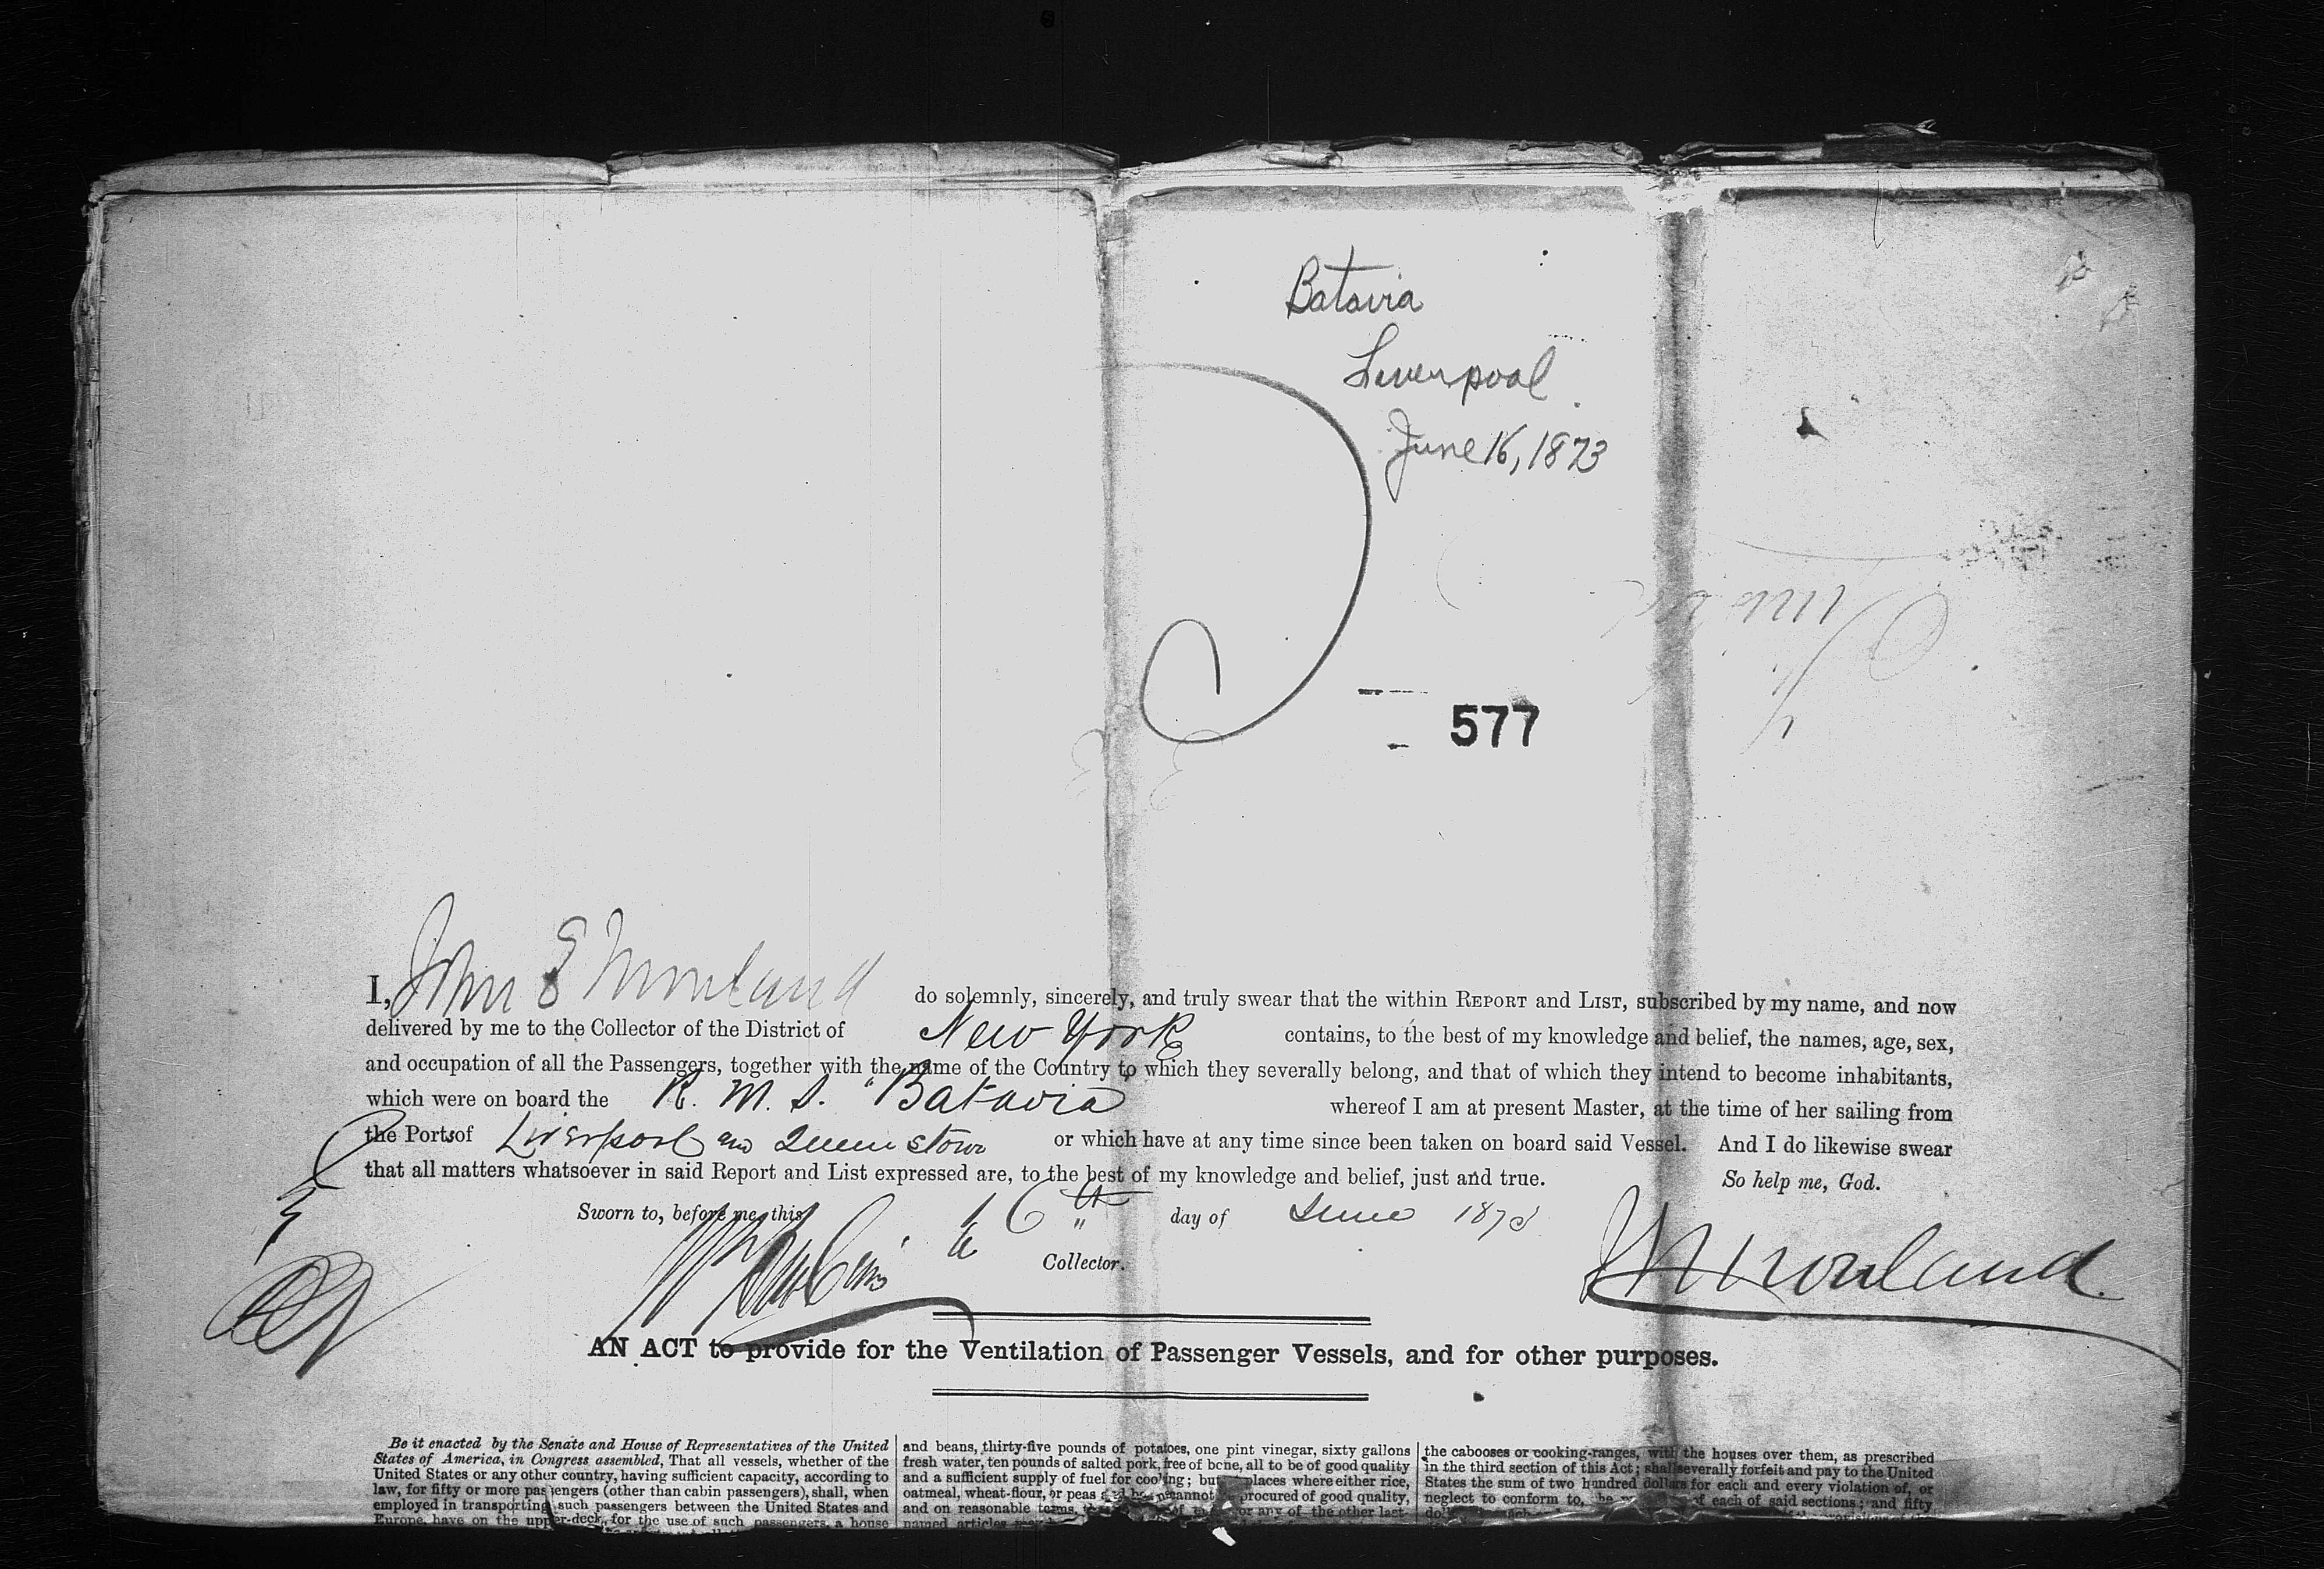 Batavia
Liverpool
June 16, 1873
577
I, John E Mouland do solemnly, sincerely, and truly swear that the within REPORT and LIST, subscribed by my name, and now
delivered by me to the Collector of the District of New York contains, to the best of my knowledge and belief, the names, age, sex,
and occupation of all the Passengers, together with the name of the Country to which they severally belong, and that of which they intend to become inhabitants,
which were on board the R. M. S. "Batavia whereof I am at present Master, at the time of her sailing from
the Ports of Liverpool and Queenstown or which have at any time since been taken on board said Vessel. And I do likewise swear
that all matters whatsoever in said Report and List expressed are, to the best of my knowledge and belief, just and true. So help me, God.
Sworn to, before me, this 16th day of June 1873
Collector.
Mouland
AN ACT to provide for the Ventilation of Passenger Vessels, and for other purposes.
Be it enacted by the Senate and House of Representatives of the United
States of America, in Congress assembled, That all vessels, whether of the
United States or any other country, having sufficient capacity, according to
law, for fifty or more passengers (other than cabin passengers), shall, when
employed in transporting such passengers between the United States and
Europe, have on the upper-deck, for the use of such passengers, a house
and beans, thirty-five pounds of potatoes, one pint vinegar, sixty gallons
fresh water, ten pounds of salted pork, free of bone, all to be of good quality
and a sufficient supply of fuel for cooking; but places where either rice,
oatmeal, wheat-flour, or peas cannot procured of good quality,
and on reasonable terms, of or any of the other last-
named articles
the cabooses or cooking-ranges, with the houses over them, as prescribed
in the third section of this Act; shall severally forfeit and pay to the United
States the sum of two hundred dollars for each and every violation of, or
neglect to conform to, of each of said sections; and fifty